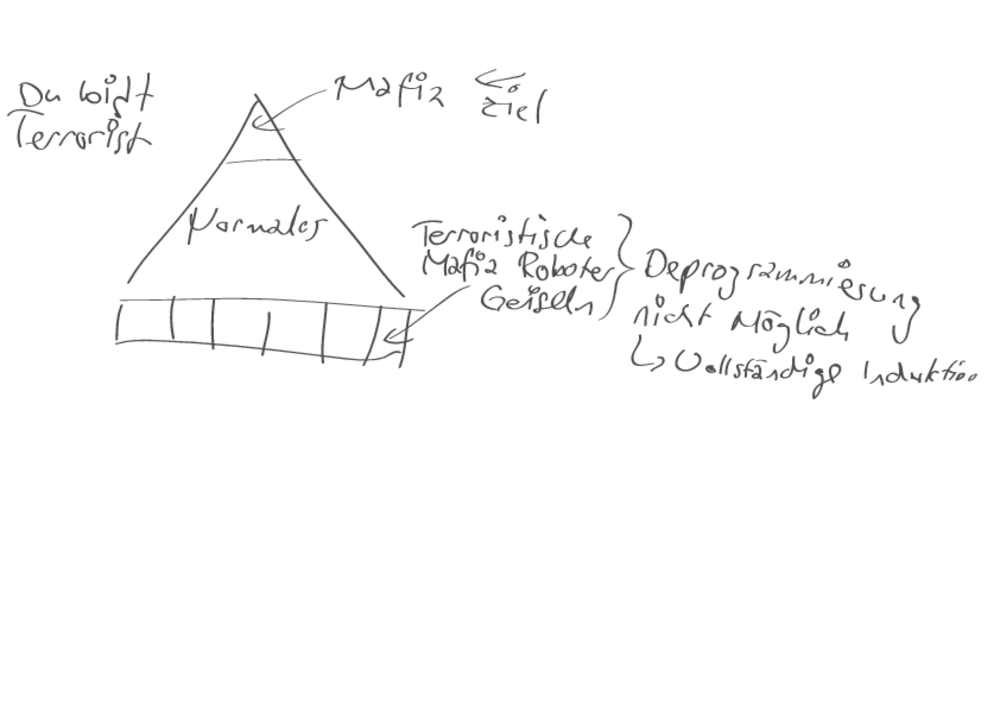 Du bist
Terrorist
Mafia
Ziel
Normales
Terroristische
Mafia Roboter
Geiseln
Deprogrammierung
nicht Möglich
↳ Vollständige Induktion